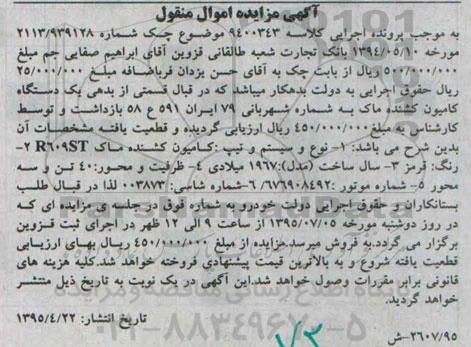 آگهی مزایده اموال منقول
به موجب پرونده اجرایی کلاسه ۹۴۰۰۳۴۳ موضوع چک شماره ۲۱۱۳/۹۳۹۱۲۸
مورخه ۱۳۹۴/۰۵/۱۰ بانک تجارت شعبه طالقانی قزوین آقای ابراهیم صفایی جم مبلغ
۵۰۰/۰۰۰/۰۰۰ ریال از بابت چک به آقای حسن یزدان فرباضافه مبلغ ۲۵/۰۰۰/۰۰۰
ریال حقوق اجرایی به دولت بدهکار میباشد که در قبال قسمتی از بدهی یک دستگاه
کامیون کشنده ماک به شماره شهربانی ۷۹ ایران ۵۹۱ ع ۵۸ بازداشت و توسط
کارشناس به مبلغ ۴۵۰/۰۰۰/۰۰۰ ریال ارزیابی گردیده و قطعیت یافته مشخصات آن
بدین شرح می باشد: ۱- نوع و سیستم و تیپ :کامیون کشنده ماک R۶۰۹ST ۲-
رنگ: قرمز ۳- سال ساخت (مدل):۱۹۶۷ میلادی ۴- ظرفیت و محور:۴۰ تن و سه
محور ۵- شماره موتور :۶۷۶۹۰۸۴۹۲/ ۶-شماره شاسی: ۰۰۳۸۷۳ لذا در قبال طلب
بستانکاران و حقوق اجرایی دولت خودرو به شماره فوق در جلسه ی مزایده ای که
در روز دوشنبه مورخه ۱۳۹۵/۰۷/۰۵ از ساعت ۹ الی ۱۲ ظهر در اجرای ثبت قزوین
برگزار می گردد.به فروش میرسد.مزایده از مبلغ ۴۵۰/۰۰۰/۰۰۰ ریال بهای ارزیابی
قطعیت یافته شروع و به بالاترین قیمت پیشنهادی فروخته خواهد شد.کلیه هزینه های
قانونی برابر مقررات وصول خواهد شد.این آگهی در یک نوبت به تاریخ ذیل منتشر
خواهد گردید.
تاریخ انتشار: ۱۳۹۵/۴/۲۲
۲۶۰۷/۹۵-ش
۱/۳
۰۲۱-۸۸۳۴۹۶۷۰-۵